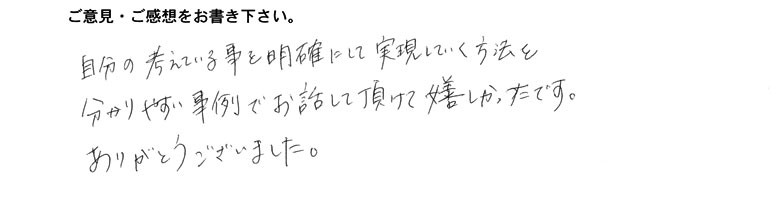 ご意見・ご感想をお書き下さい。
自分の考えている事を明確にして実現していく方法を
分かりやすい事例でお話して頂けて嬉しかったです。
ありがとうございました。